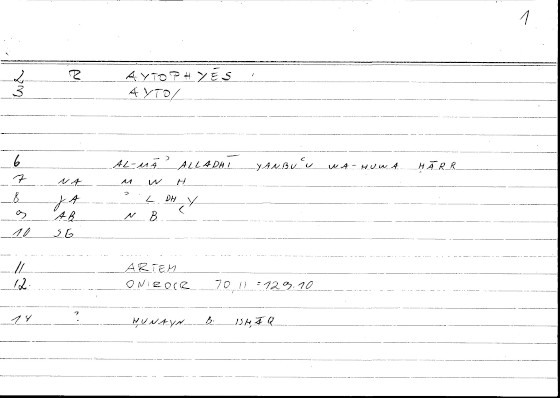 1
2 R AYTOPHYĒS
3 AYTO/
6 AL-MĀʾ ALLADHĪ YANBUʿU WA-HUWA ḤĀRR
7 NA M W H
8 JA ʾ L DH Y
9 AB N B ʿ
10 SG
11 ARTEM
12. ONIROCR 70,11 = 129.10
14 ? ḤUNAYN B ISḤĀQ